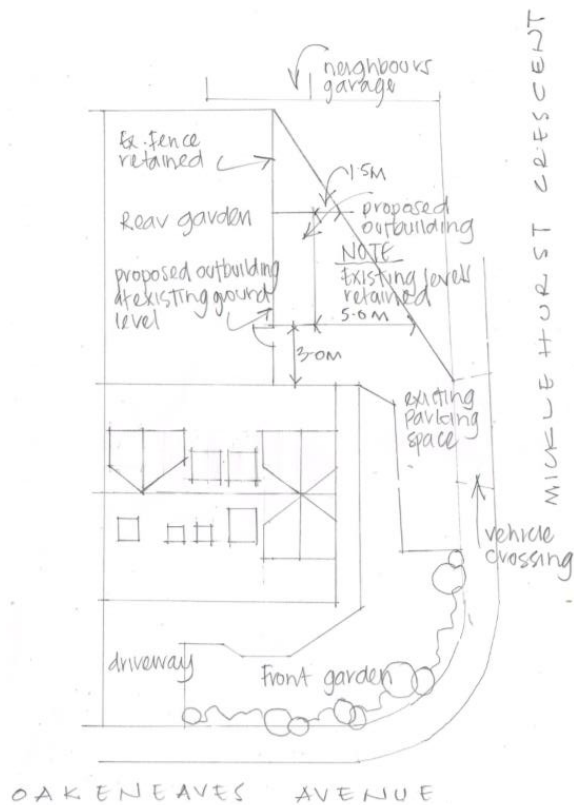 neighbours
garage
Ex. Fence
retained
1.5M
Rear garden
proposed
outbuilding
NOTE
Existing levels
retained
proposed outbuilding
at existing ground
level
5.0M
3.0M
existing
parking
space
vehicle
crossing
driveway
Front garden
MICKLEHURST CRESCENT
OAKENEAVES AVENUE